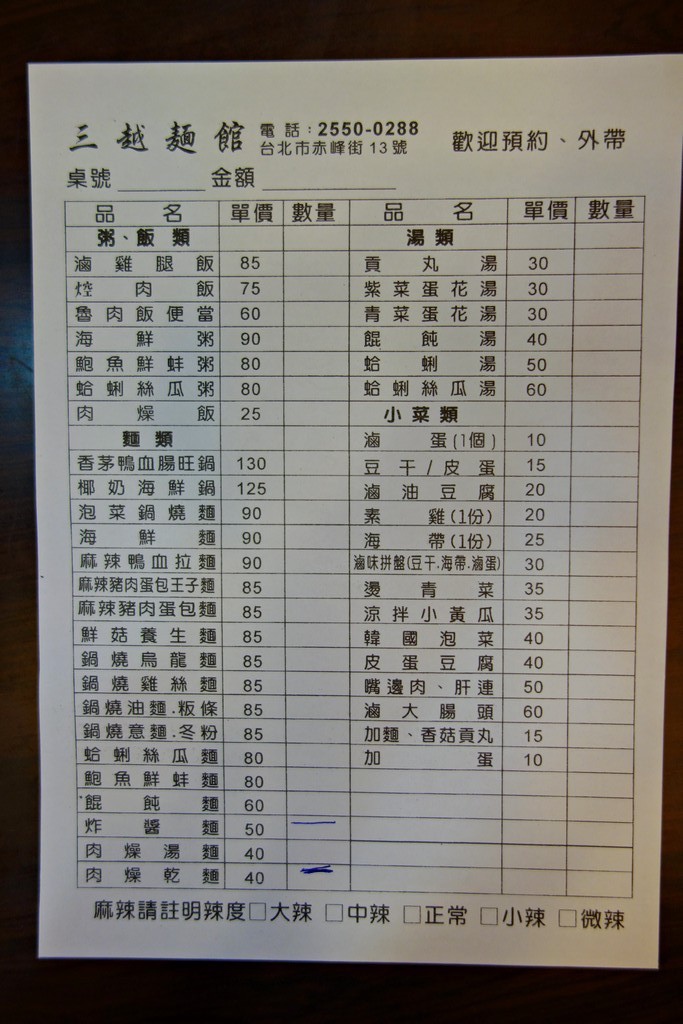 三越麵館 電話：2550-0288 歡迎預約、外帶
台北市赤峰街13號
桌號 金額
品名 單價 數量 品名 單價 數量
粥、飯類 湯類
滷雞腿飯 85 貢丸湯 30
焢肉飯 75 紫菜蛋花湯 30
魯肉飯便當 60 青菜蛋花湯 30
海鮮粥 90 餛飩湯 40
鮑魚鮮蚌粥 80 蛤蜊湯 50
蛤蜊絲瓜粥 80 蛤蜊絲瓜湯 60
肉燥飯 25 小菜類
麵類 滷蛋(1個) 10
香茅鴨血腸旺鍋 130 豆干/皮蛋 15
椰奶海鮮鍋 125 滷油豆腐 20
泡菜鍋燒麵 90 素雞(1份) 20
海鮮麵 90 海帶(1份) 25
麻辣鴨血拉麵 90 滷味拼盤(豆干.海帶.滷蛋) 30
麻辣豬肉蛋包王子麵 85 燙青菜 35
麻辣豬肉蛋包麵 85 涼拌小黃瓜 35
鮮菇養生麵 85 韓國泡菜 40
鍋燒烏龍麵 85 皮蛋豆腐 40
鍋燒雞絲麵 85 嘴邊肉、肝連 50
鍋燒油麵.粄條 85 滷大腸頭 60
鍋燒意麵.冬粉 85 加麵、香菇貢丸 15
蛤蜊絲瓜麵 80 加蛋 10
鮑魚鮮蚌麵 80
餛飩麵 60
炸醬麵 50
肉燥湯麵 40
肉燥乾麵 40
麻辣請註明辣度□大辣 □中辣 □正常 □小辣 □微辣